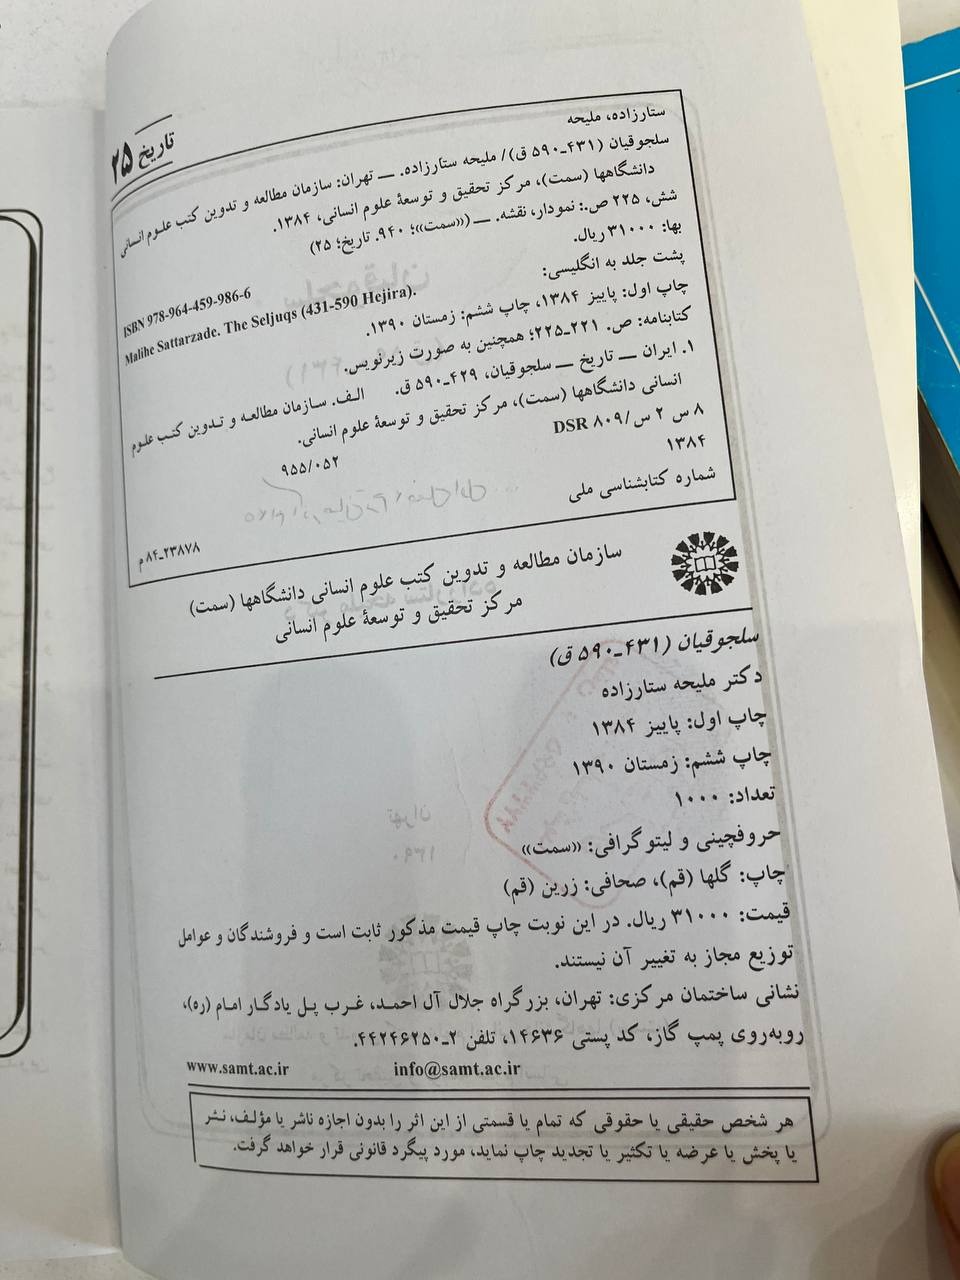 تاریخ ۲۵
ستارزاده، ملیحه
سلجوقیان (۴۳۱ـ۵۹۰ ق)/ ملیحه ستارزاده. ـــ تهران: سازمان مطالعه و تدوین کتب علوم انسانی
دانشگاهها (سمت)، مرکز تحقیق و توسعهٔ علوم انسانی، ۱۳۸۴.
شش، ۲۲۵ ص.: نمودار، نقشه. ـــ («سمت»؛ ۹۴۰. تاریخ؛ ۲۵)
بها: ۳۱۰۰۰ ریال.
ISBN 978-964-459-986-6
پشت جلد به انگلیسی:
Malihe Sattarzade. The Seljuqs (431-590 Hejira).
چاپ اول: پاییز ۱۳۸۴، چاپ ششم: زمستان ۱۳۹۰.
کتابنامه: ص. ۲۲۱ـ۲۲۵؛ همچنین به صورت زیرنویس.
۱. ایران ـــ تاریخ ـــ سلجوقیان، ۴۲۹ـ۵۹۰ ق. الف. سازمان مطالعه و تدوین کتب علوم
انسانی دانشگاهها (سمت)، مرکز تحقیق و توسعهٔ علوم انسانی.
۸ س ۲ س/ ۸۰۹ DSR ۹۵۵/۰۵۲
۱۳۸۴
شماره کتابشناسی ملی ۲۳۸۷۸ـ۸۴ م
سازمان مطالعه و تدوین کتب علوم انسانی دانشگاهها (سمت)
مرکز تحقیق و توسعهٔ علوم انسانی
سلجوقیان (۴۳۱ـ۵۹۰ ق)
دکتر ملیحه ستارزاده
چاپ اول: پاییز ۱۳۸۴
چاپ ششم: زمستان ۱۳۹۰
تعداد: ۱۰۰۰
حروفچینی و لیتوگرافی: «سمت»
چاپ: گلها (قم)، صحافی: زرین (قم)
قیمت: ۳۱۰۰۰ ریال. در این نوبت چاپ قیمت مذکور ثابت است و فروشندگان و عوامل
توزیع مجاز به تغییر آن نیستند.
نشانی ساختمان مرکزی: تهران، بزرگراه جلال آل احمد، غرب پل یادگار امام (ره)،
روبه‌روی پمپ گاز، کد پستی ۱۴۶۳۶، تلفن ۲ـ۴۴۲۴۶۲۵۰.
www.samt.ac.ir info@samt.ac.ir
هر شخص حقیقی یا حقوقی که تمام یا قسمتی از این اثر را بدون اجازه ناشر یا مؤلف، نشر
یا پخش یا عرضه یا تکثیر یا تجدید چاپ نماید، مورد پیگرد قانونی قرار خواهد گرفت.